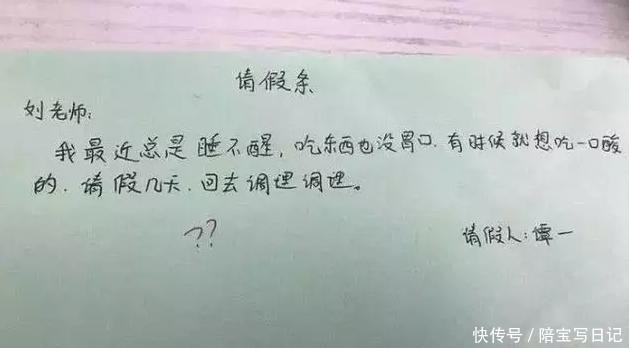 请假条
刘老师:
我最近总是睡不醒，吃东西也没胃口.有时候就想吃一口酸
的.请假几天.回去调理调理。
??
请假人:谭一
快传号/陪宝写日记